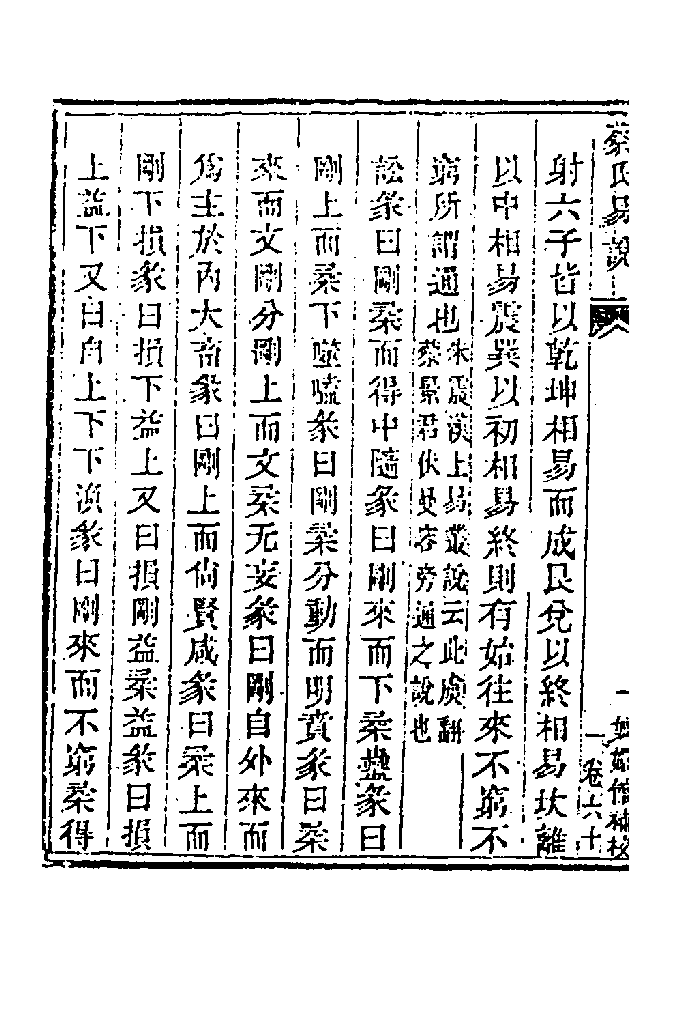 蔡氏易說 一 卷六十
射六子皆以乾坤相易而成艮兌以終相易坎離
以中相易震巽以初相易終則有始往來不窮不
窮所謂通也朱震漢上易叢說云此虞翻
蔡景君伏曼容旁通之說也
訟彖曰剛來而得中隨彖曰剛來而下柔蠱彖曰
剛上而柔下噬嗑彖曰剛柔分動而明賁彖曰柔
來而文剛分剛上而文柔无妄彖曰剛自外來而
爲主於內大畜彖曰剛上而尚賢咸彖曰柔上而
剛下損彖曰損下益上又曰損剛益柔益彖曰損
上益下又曰自上下下渙彖曰剛來而不窮柔得